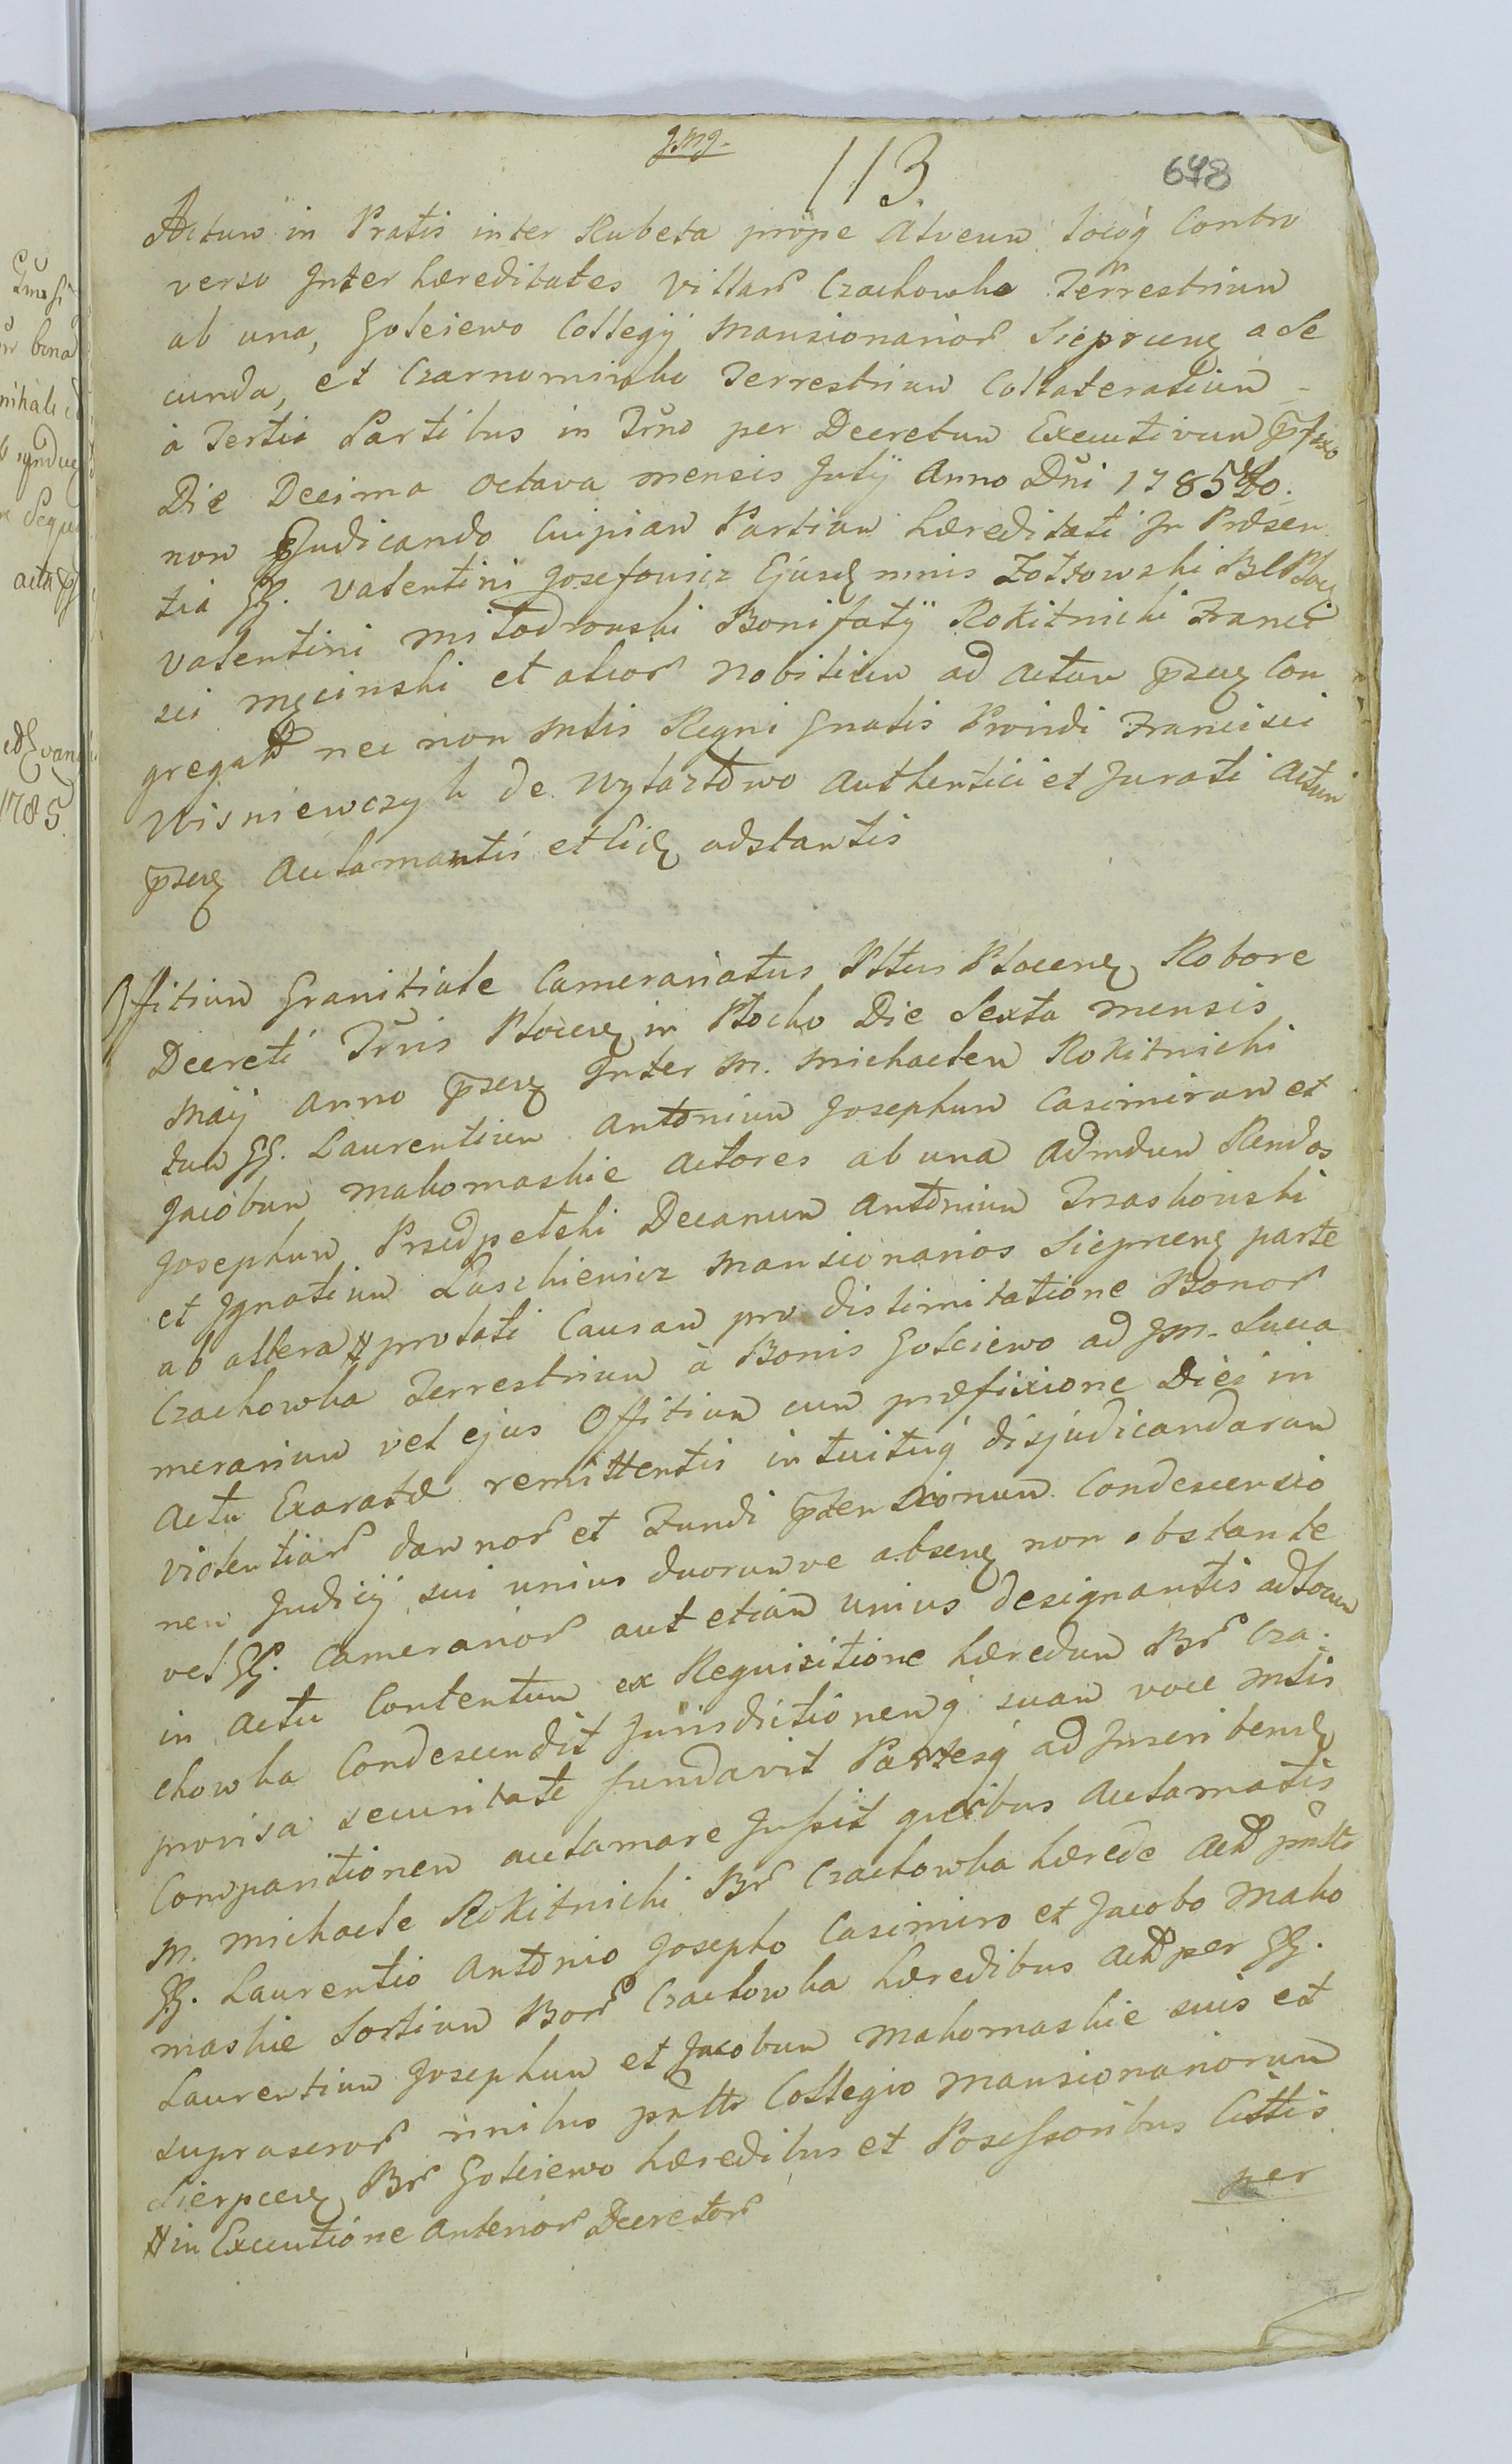 JMJ.
113.
648
Actum in Pratis inter Rubeta prope Alveum locoq Contro
verso Inter hæreditates Villar Czachowka Terrestrium
ab una, Goleiewo Collegij Mansionarior Sieprcens a Se
cunda, et Czarnominko Terrestrium Collateralium
à Tertia Partibus in Trno per Decretum Executivum pfixo
Die Decima Octava mensis Julij Anno Dni 1785to.
non pjudicando Cuipiam Partium hæreditati In Præsen
tia GG. Valentini Josefowicz Ejusd nnis Zołtowski BCPloc
Valentini Miłodrowski Bonifatij Rokitnicki Franci
sci Męcinski et alior Nobilium ad Actum psens Con
gregat nec non Mtlis Regni Gnalis Providi Francisci
Wisniewczyk de Wylazłowo Authentici et Jurati Actum
psens Aclamantis et Eid adstantis
Offitium Granitiale Camerariatus Pltus Plocens Robore
Decreti Trnis Plocens in Płocko Die Sexta mensis
Maij Anno psens Inter M. Michaelem Rokitnicki
tum GG. Laurentium Antonium Josephum Casimirum et
Jacobum Makomaskie Actores ab una Admdum Rendos
Josephum Przedpełski Decanum Antonium Trzaskowski
et Ignatium Laszkiewicz Mansionarios Sieprcens parte
ab altera # prolati Causam pro dislimitatione Bonor
Czachowka Terrestrium à Bonis Goleiewo ad JM. Succa
merarium vel ejus Offitium cum præfixione Diei in
Actu Exaratæ remittentis intuituq disjudicandarum
violentiar damnor et Fundi ptensionum Condescensio
nem Judicij sui unius duorumve absens non obstante
vel GG. Camerarior aut etiam unius designantis ad Locum
in Actu Contentum ex Requisitione hæredum Br Cza-
chowka Condescendit Jurisdictionemq suam voce Mtlis
provisa securitate fundavit Partesq ad Inscribend
Comparitionem aclamare Jussit quibus Aclamatis
M. Michaele Rokitnicki Br Czachowka hærede Act pnlto
GG. Laurentio Antonio Josepho Casimiro et Jacobo Mako
maskie Sortium Bor Czachowka hæredibus Act per GG.
Laurentium Josephum et Jacobum Makomaskie suis et
suprascror nnibus pnltr Collegio Mansionariorum
Sierpcens Br Goleiewo hæredibus et Possessoribus Cittis
per
# in Executione Anterior Decretor